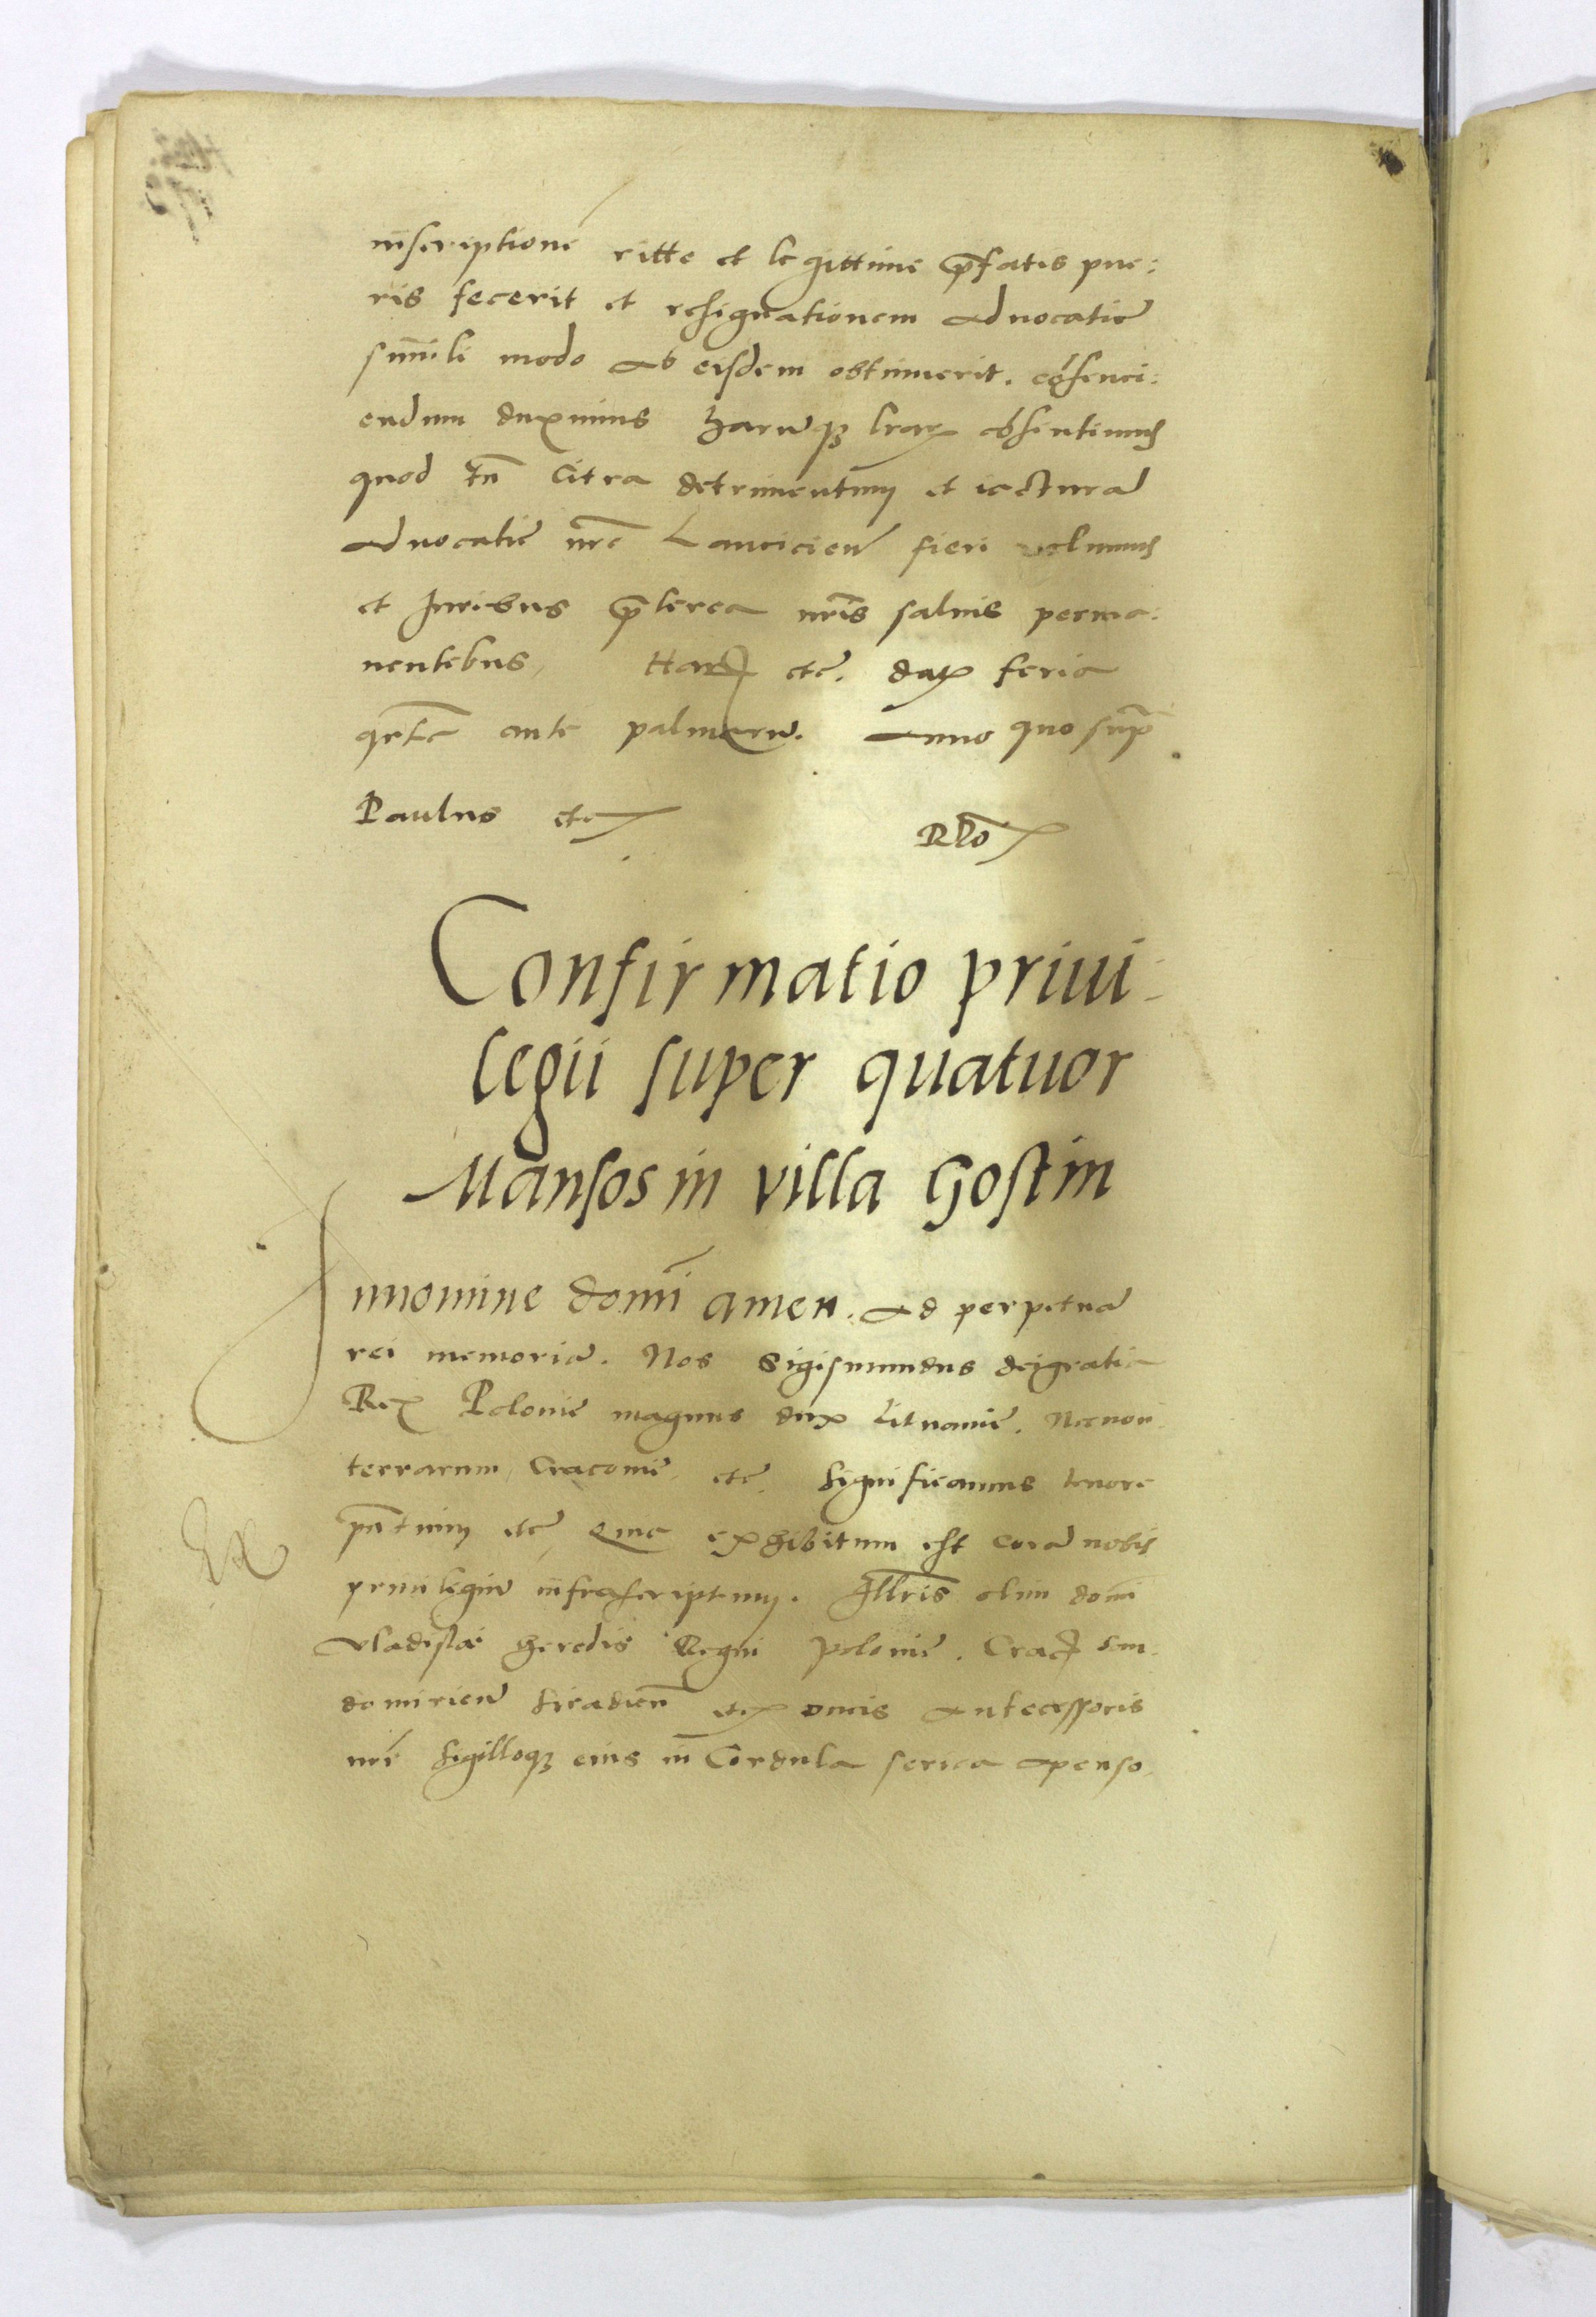 inscriptionē ritte et legittime p̄fatis pue:
ris fecerit et resignationem aduocatiē
simili modo ab eisdem obtinuerit. cōsenci:
endum duximus harūqꝫ lrarꝝ cōsintimus
quod tn̄ citra detrimentum et iacturā
aduocatiē nr̄e Lancicien̄ fieri volumus
et Iuribus p̄terea nr̄is saluis perma:
nentibus, Harꝝ etc̄. datꝝ feria
qrta ante palmarū. Anno quo supra
Paulus etc
Rlo
Confirmatio priui-
legii super quatuor
Mansos in villa Gostin
In nomine domī amen. Ad perpetuā
rei memoriā. Nos Sigismundus dei gratia
Rex Poloniē magnus dux Lituaniē. Necnon
terrarum Cracouiē etc̄. significamus tenore
Ex
pn̄tium etc̄ Quia exhibitum est corā nobis
priuilegiū infrascriptum. Illris olim domī
Vladislai heredis Regni Poloniē. Crac̄ san-
domirien̄ siradien̄ etc ducis Antecessoris
nr̄i sigilloqꝫ eius in Cordula serica apenso